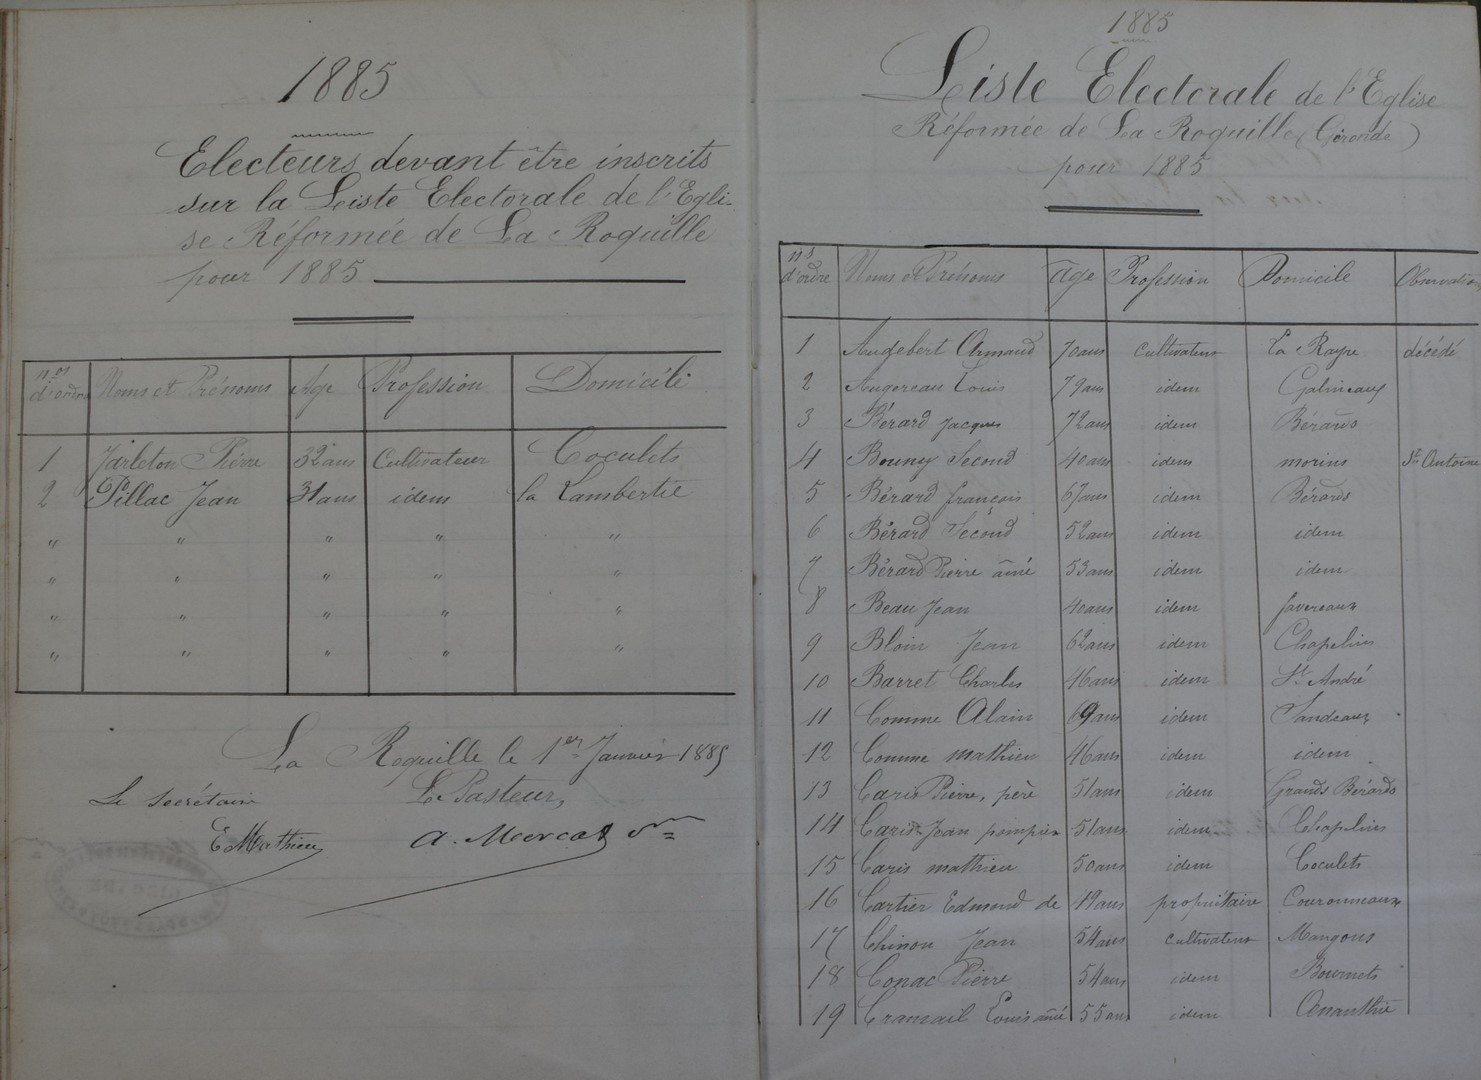 1885
Electeurs devant être inscrits
sur la Liste Electorale de l'Egli-
se Réformée de La Roquille
pour 1885
nos d'ordre Noms et Prénoms Age Profession Domicile
1 Jarleton Pierre 32 ans Cultivateur Coculets
2 Pillac Jean 31 ans idem la Lambertie
" " " " "
" " " " "
" " " " "
" " " " "
La Roquille le 1er Janvier 1885
Le Secrétaire Le Pasteur,
E Mathieu a. Marcat
1885
Liste Electorale de l'Eglise
Réformée de La Roquille (Gironde)
pour 1885
nos d'ordre Noms et Prénoms age Profession Domicile Observations
1 Audebert Armand 70 ans cultivateur La Raype décédé
2 Augereau Louis 79 ans idem Galineaux
3 Bérard Jacques 72 ans idem Bérards
4 Bouny Second 40 ans idem morins St Antoine
5 Bérard françois 67 ans idem Bérards
6 Bérard Second 52 ans idem idem
7 Bérard Pierre ainé 53 ans idem idem
8 Beau Jean 40 ans idem favereaux
9 Bloin Jean 62 ans idem Chapelins
10 Barret Charles 46 ans idem St André
11 Comme Alain 69 ans idem Jandeaux
12 Comme mathieu 46 ans idem idem
13 Caris Pierre, père 51 ans idem Grands Bérards
14 Caris Jean pompier 51 ans idem Chapelins
15 Caris mathieu 50 ans idem Coculets
16 Cartier Edmond de 49 ans propriétaire Couronneaux
17 Chinon Jean 54 ans cultivateur Mangons
18 Conac Pierre 54 ans idem Bournets
19 Cramail Louis ainé 55 ans idem